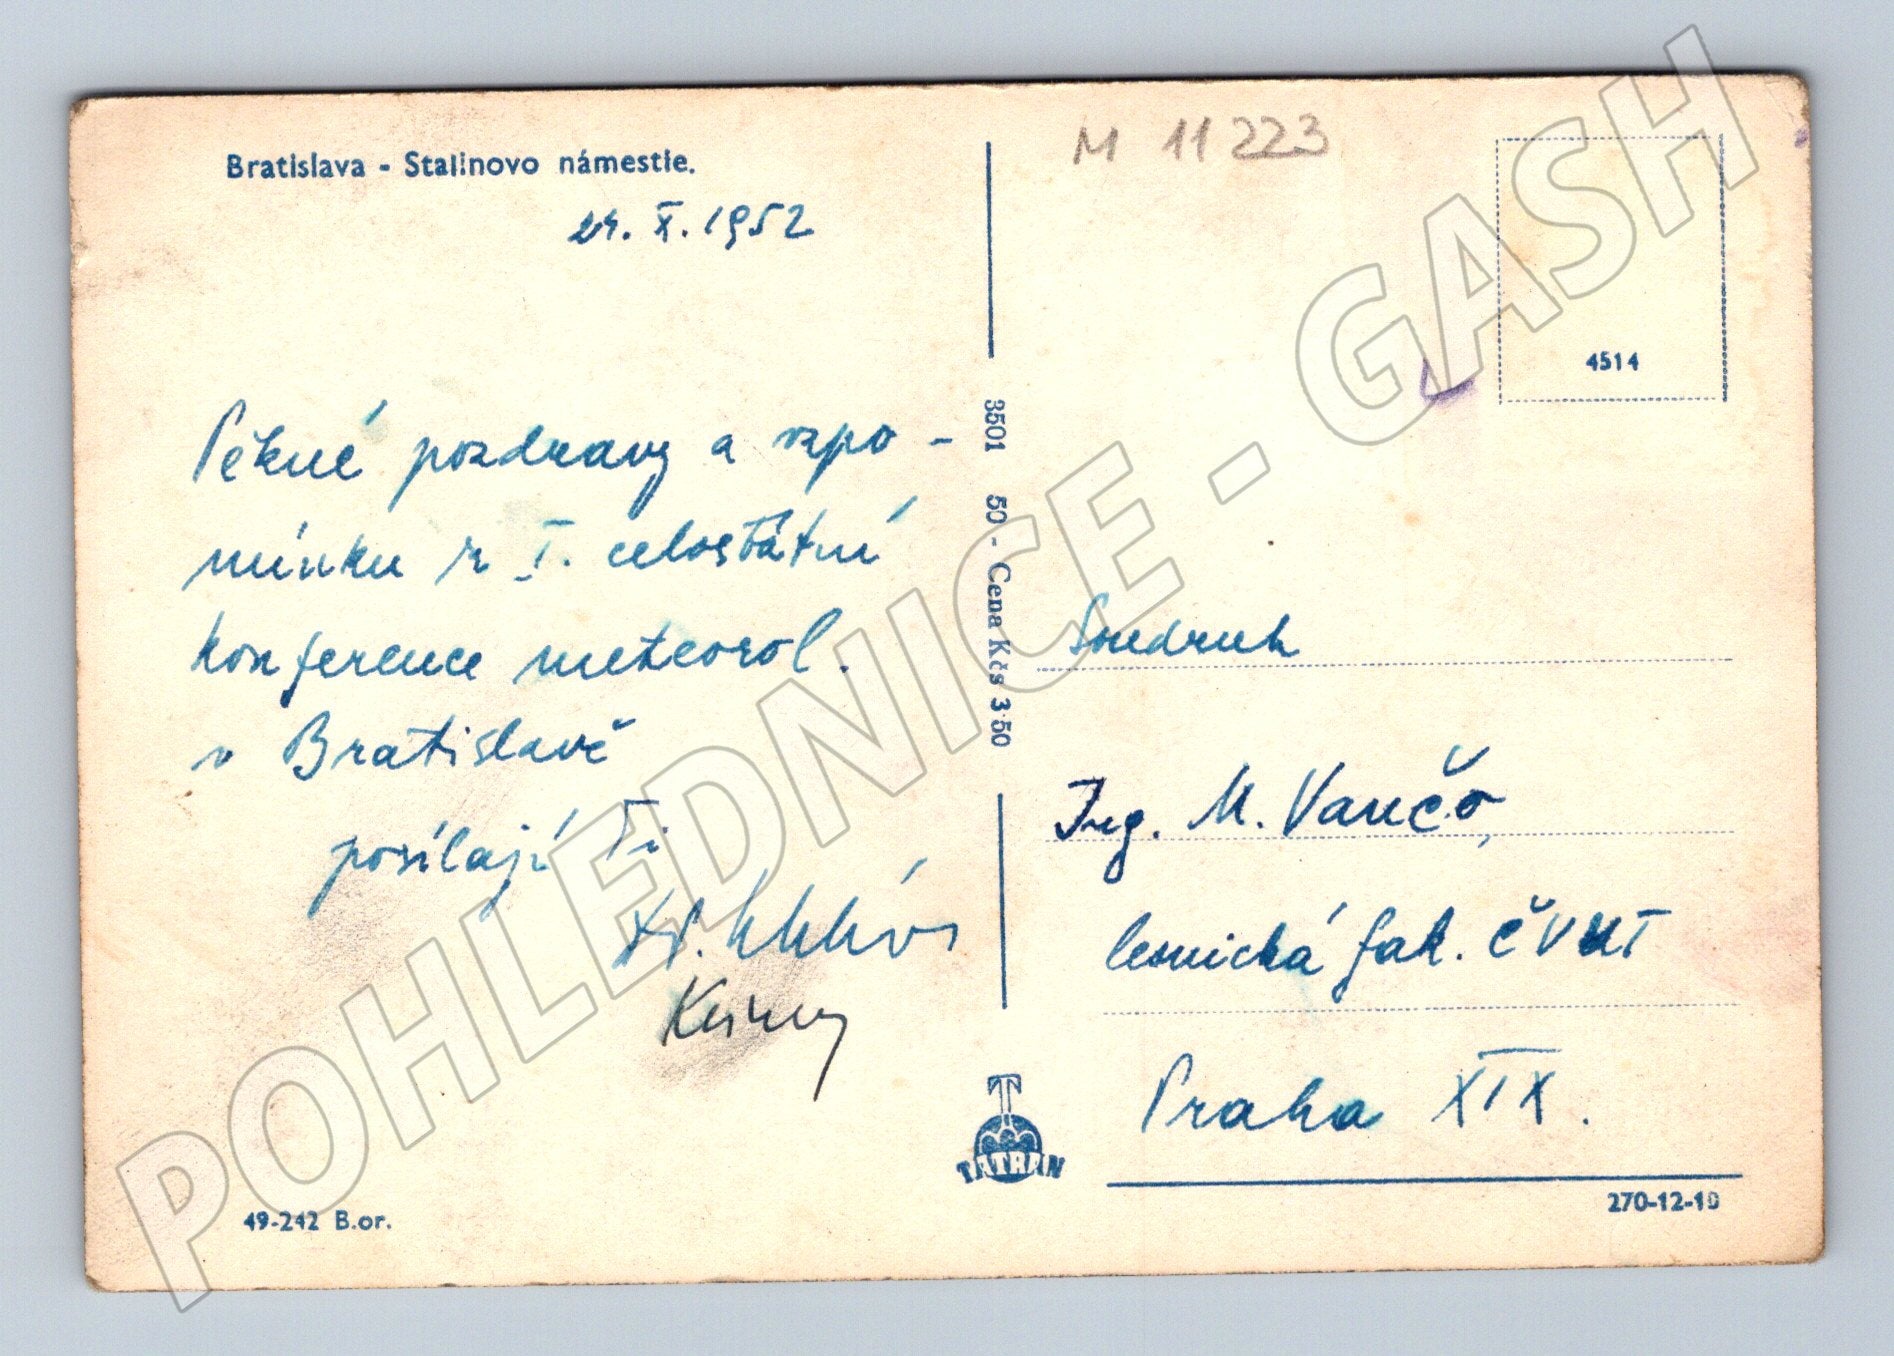 Bratislava - Stalinovo námestie.
24. X. 1952
Pěkné pozdravy a vzpo-
mínku z I. celostátní
konference meteorol.
v Bratislavě
posílají Ti
M 11223
4514
3501 50 - Cena Kčs 3·50
Soudruh
Ing. M. Vančo,
lesnická fak. ČVUT
Praha XIX.
TATRAN
49-242 B.or.
270-12-10
POHLEDNICE - GASH